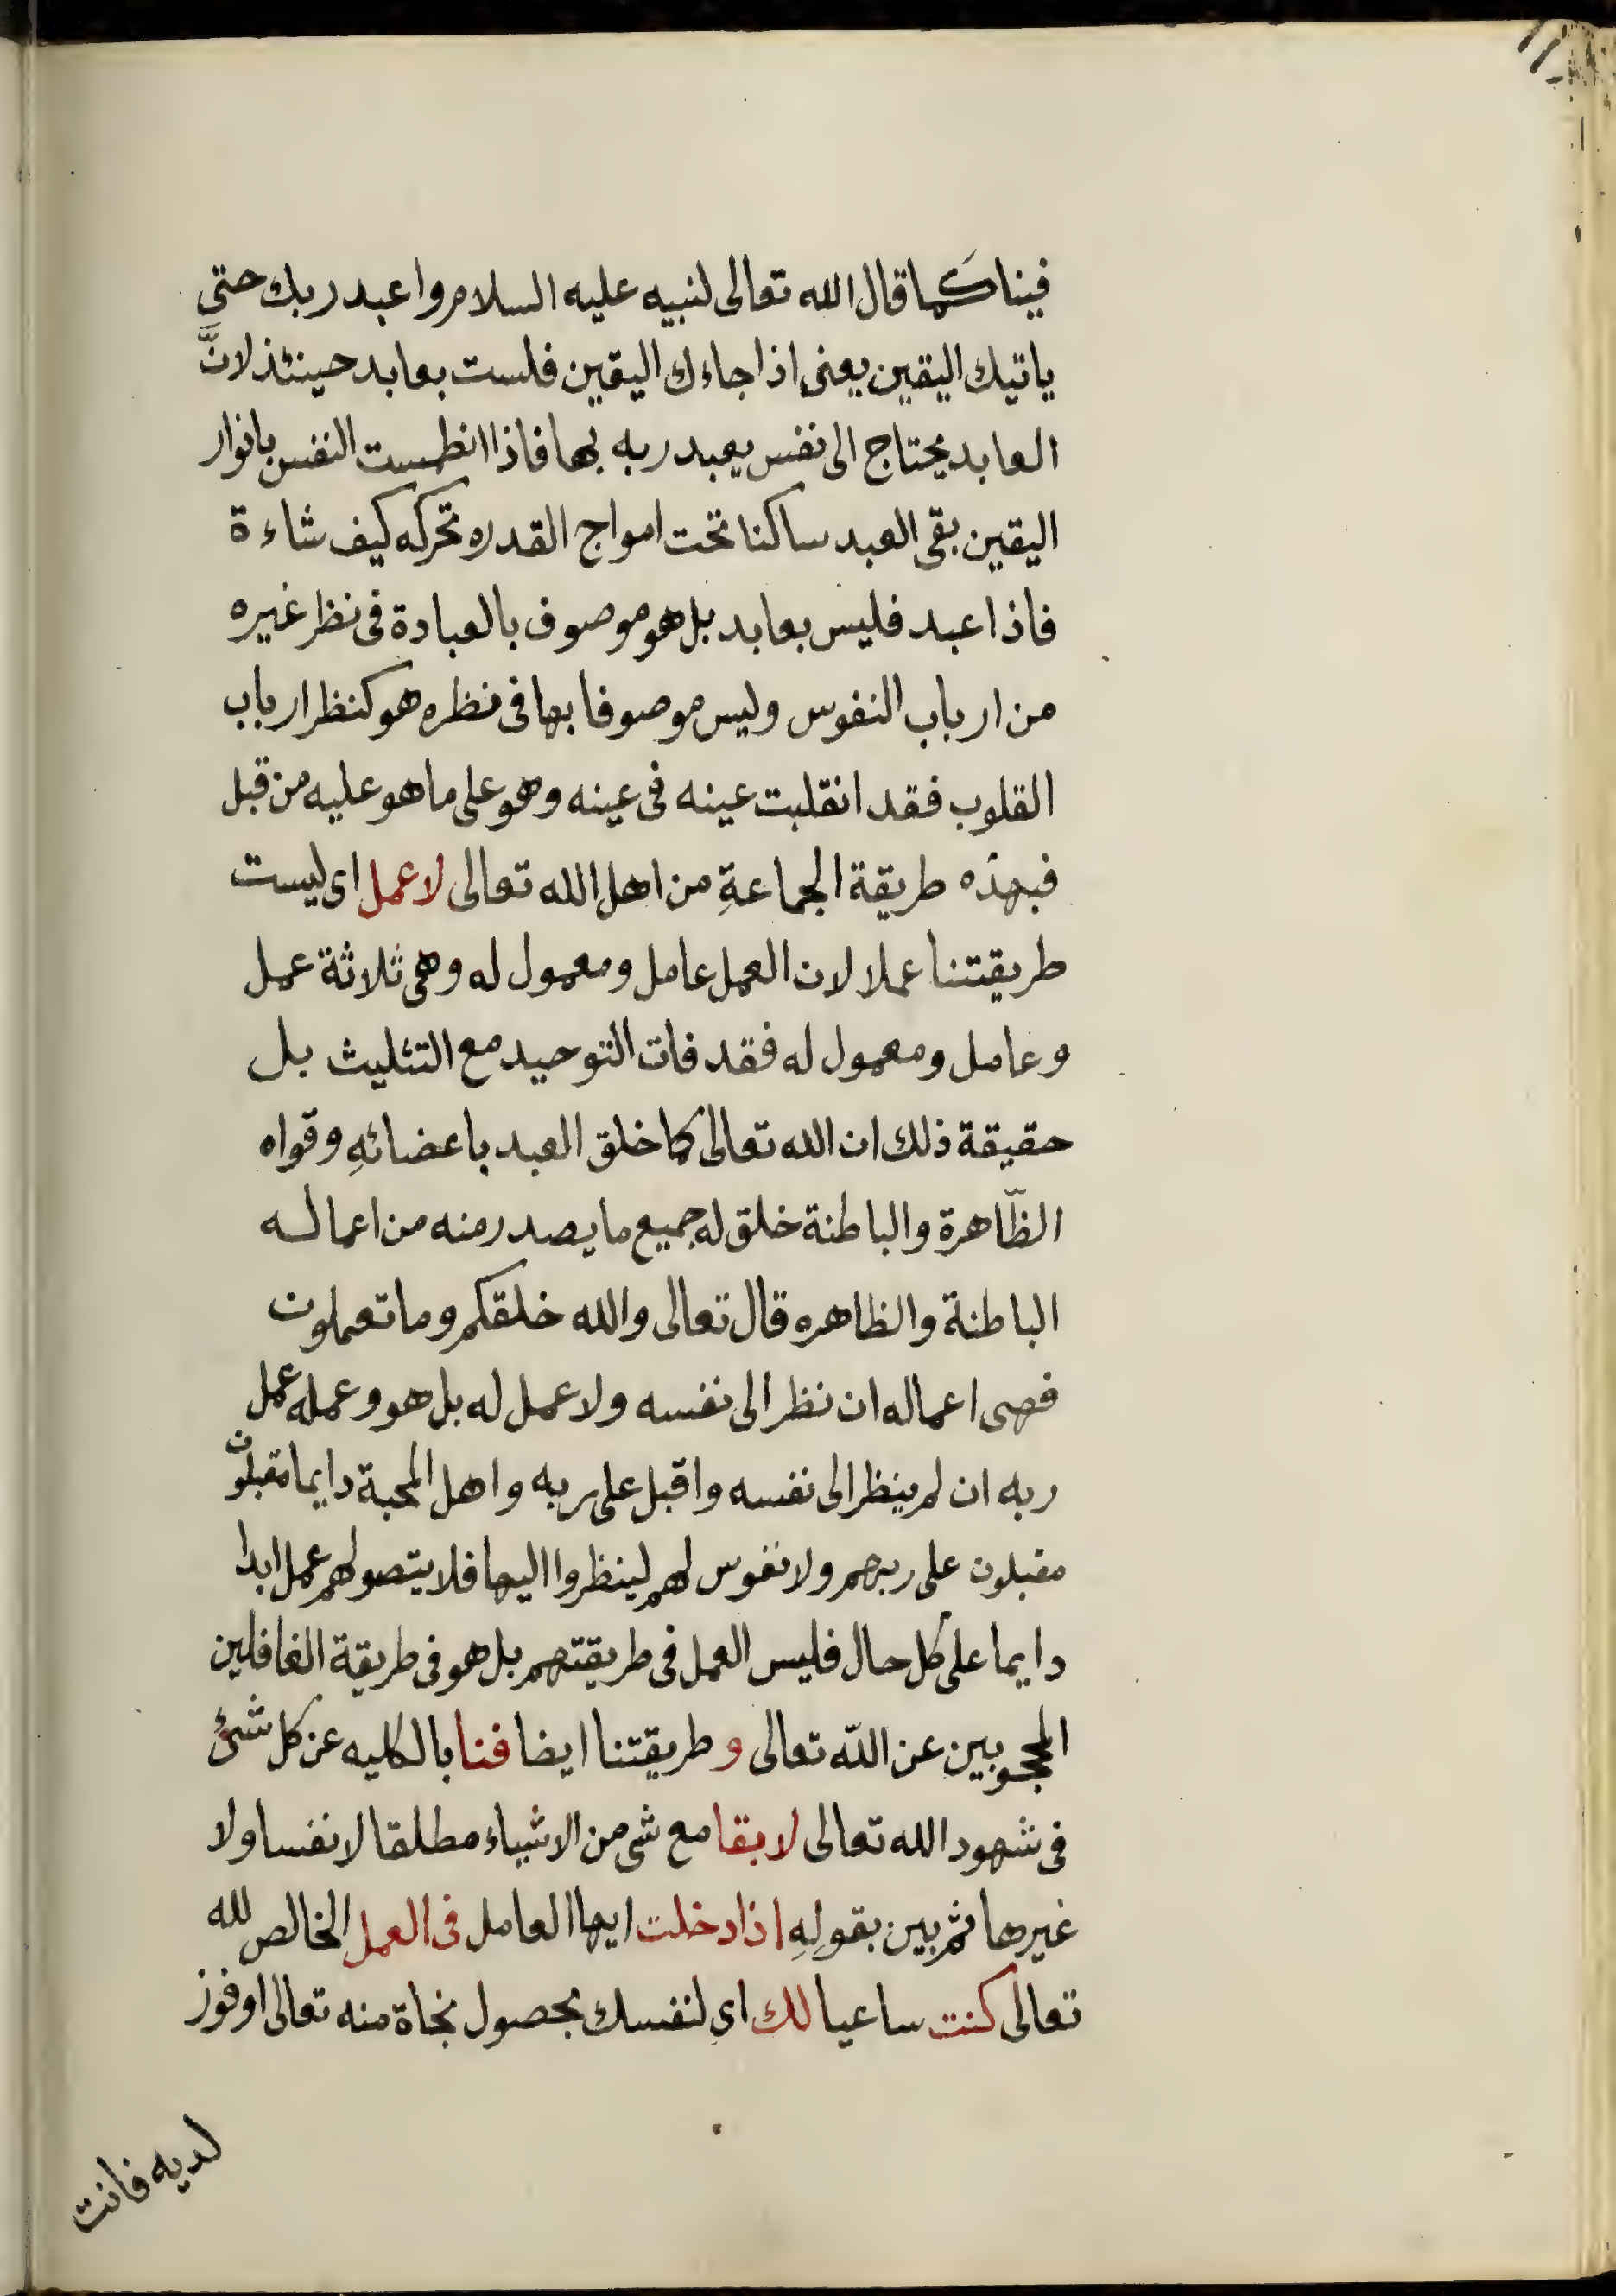 فيناكما قال الله تعالى لنبيه عليه السلام واعبد ربك حتى
ياتيك اليقين يعنى اذا جاءك اليقين فلست بعابد حينئذ لانَّ
العابد يحتاج الى نفس يعبد ربه بها فاذا انطمست النفس بانوار
اليقين بقى العبد ساكنا تحت امواج القدره تحركه كيف شاءة
فاذا عبد فليس بعابد بل هو موصوف بالعبادة فى نظر غيره
من ارباب النفوس وليس موصوفا بها فى نظره هو كنظر ارباب
القلوب فقد انقلبت عينه فى عينه وهو على ما هو عليه من قبل
فبهذه طريقة الجماعةِ من اهل الله تعالى لا عمل اى ليست
طريقتنا عملا لان العمل عامل ومعمول له وهى ثلاثة عمل
وعامل ومعمول له فقد فات التوحيد مع التثليث بل
حقيقة ذلك ان الله تعالى كما خلق العبد باعضائهِ وقواه
الظّاهرة والباطنة خلق له جميع ما يصدر منه من اعماله
الباطنة والظاهره قال تعالى والله خلقكم وما تعملون
فهى اعماله ان نظر الى نفسه ولا عمل له بل هو وعمله عمل
ربه ان لم ينظر الى نفسه واقبل على ربه واهل المحبة دايما مقبلون
مقبلون على ربهم ولا نفوس لهم لينظروا اليها فلا يتصو لهم عمل ابدا
دايما على كل حال فليس العمل فى طريقتهم بل هو فى طريقة الغافلين
المحجوبين عن اللّه تعالى و طريقتنا ايضا فنا بالكليه عن كل شئ
فى شهود الله تعالى لا بقا مع شى من الاشياء مطلقا لا نفسا ولا
غيرها ثم بين بقولِهِ اذا دخلت ايها العامل فى العمل الخالص لله
تعالى كنت ساعيا لك اى لنفسك بحصول نجاة منه تعالى او فوز
لديه فانت